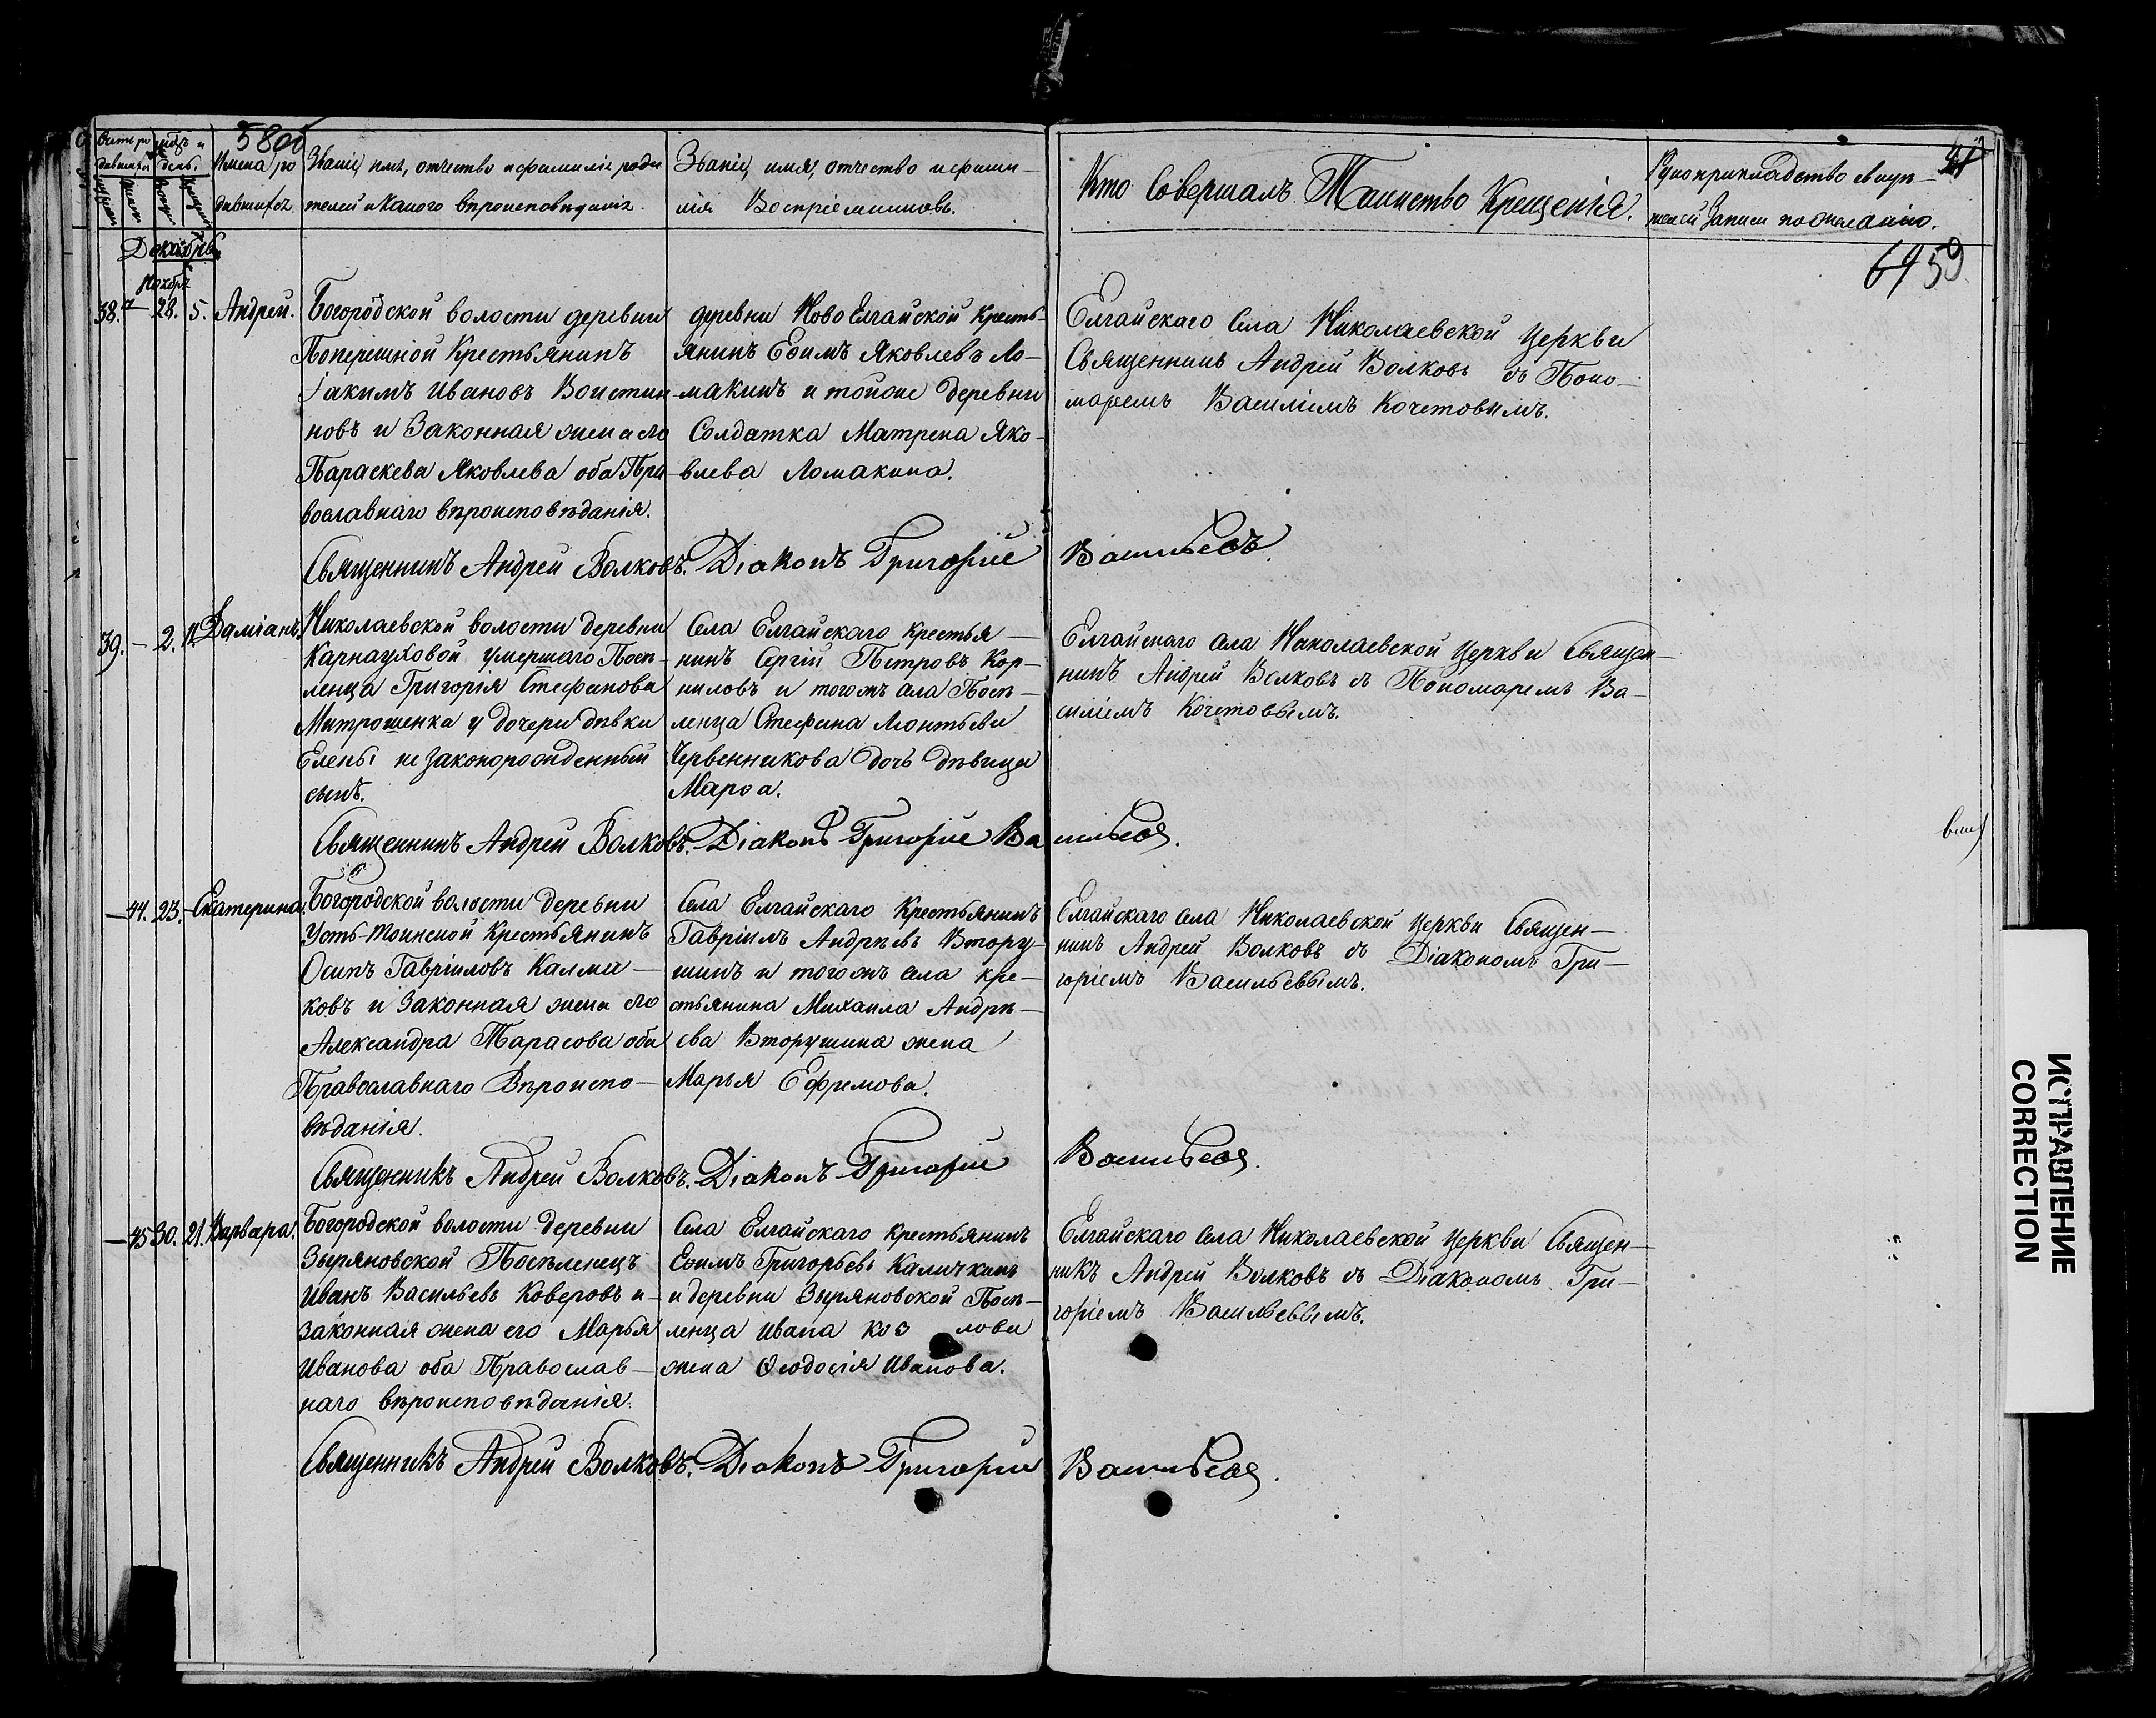 580
Счетъ ро
дившихся
мѣсяцъ и
день.
Имена ро
дившихся.
Званіе, имя, отчество и фамилія роди
телей и какого вѣроисповѣданія.
Званіе, имя, отчество и фами-
лія Воспріемниковъ.
Кто Совершалъ Таинство Крещенія.
Рукоприкладство свидѣ-
телей Записи по желанію.
6959
Декабрь
Ноября
38. — 28. 5. Андрей.
Богородской волости деревни
Поперешной Крестьянинъ
Іакимъ Ивановъ Воистин
новъ и Законная жена его
Параскева Яковлева оба Пра
вославнаго вѣроисповѣданія.
деревни Ново Елгайской Кресть-
янинъ Ефимъ Яковлевъ Ло-
макинъ и тойже деревни
Солдатка Матрена Яко-
влева Ломакина.
Елгайскаго Села Николаевской Церкви
Священникъ Андрей Волковъ съ Поно-
маремъ Василіемъ Кочетовымъ.
Священникъ Андрей Волковъ. Діаконъ Григорій Васильевъ
39. — 2. 11. Даміанъ.
Николаевской волости деревни
Карнауховой умершаго Посе-
ленца Григорія Стефанова
Митрошенка у дочери дѣвки
Елены незаконорожденный
сынъ.
Села Елгайскаго Крестья-
нинъ Сергій Петровъ Кор-
ниловъ и тогожъ села Посе-
ленца Стефана Леонтьева
Червенникова дочь дѣвица
Марѳа.
Елгайскаго села Николаевской Церкви Священ-
никъ Андрей Волковъ съ Пономаремъ Ва-
силіемъ Кочетовымъ.
Священникъ Андрей Волковъ. Діаконъ Григорій Васильевъ.
— 44. 23. — Екатерина.
Богородской волости деревни
Усть-Тоинской Крестьянинъ
Осипъ Гавріиловъ Калма-
ковъ и Законная жена его
Александра Тарасова оба
Православнаго Вѣроиспо-
вѣданія.
Села Елгайскаго Крестьянинъ
Гавріилъ Андрѣевъ Втору-
шинъ и тогожъ села кре-
стьянина Михаила Андрѣ-
ева Вторушина жена
Марья Ефремова.
Елгайскаго села Николаевской Церкви Священ-
никъ Андрей Волковъ съ Діакономъ Гри-
горіемъ Васильевымъ.
Священникъ Андрей Волковъ. Діаконъ Григорій Васильевъ.
— 45 30. 21. Варвара.
Богородской волости деревни
Зыряновской Поселенецъ
Иванъ Васильевъ Коверовъ и
законная жена его Марья
Иванова оба Православ-
наго вѣроисповѣданія.
Села Елгайскаго крестьянинъ
Ефимъ Григорьевъ Каличкинъ
и деревни Зыряновской Посе-
ленца Ивана Коз лова
жена Ѳеодосія Иванова.
Елгайскаго Села Николаевской Церкви Священ-
никъ Андрей Волковъ съ Діакономъ Гри-
горіемъ Васильевымъ.
Священникъ Андрей Волковъ. Діаконъ Григорій Васильевъ.
ИСПРАВЛЕНИЕ
CORRECTION